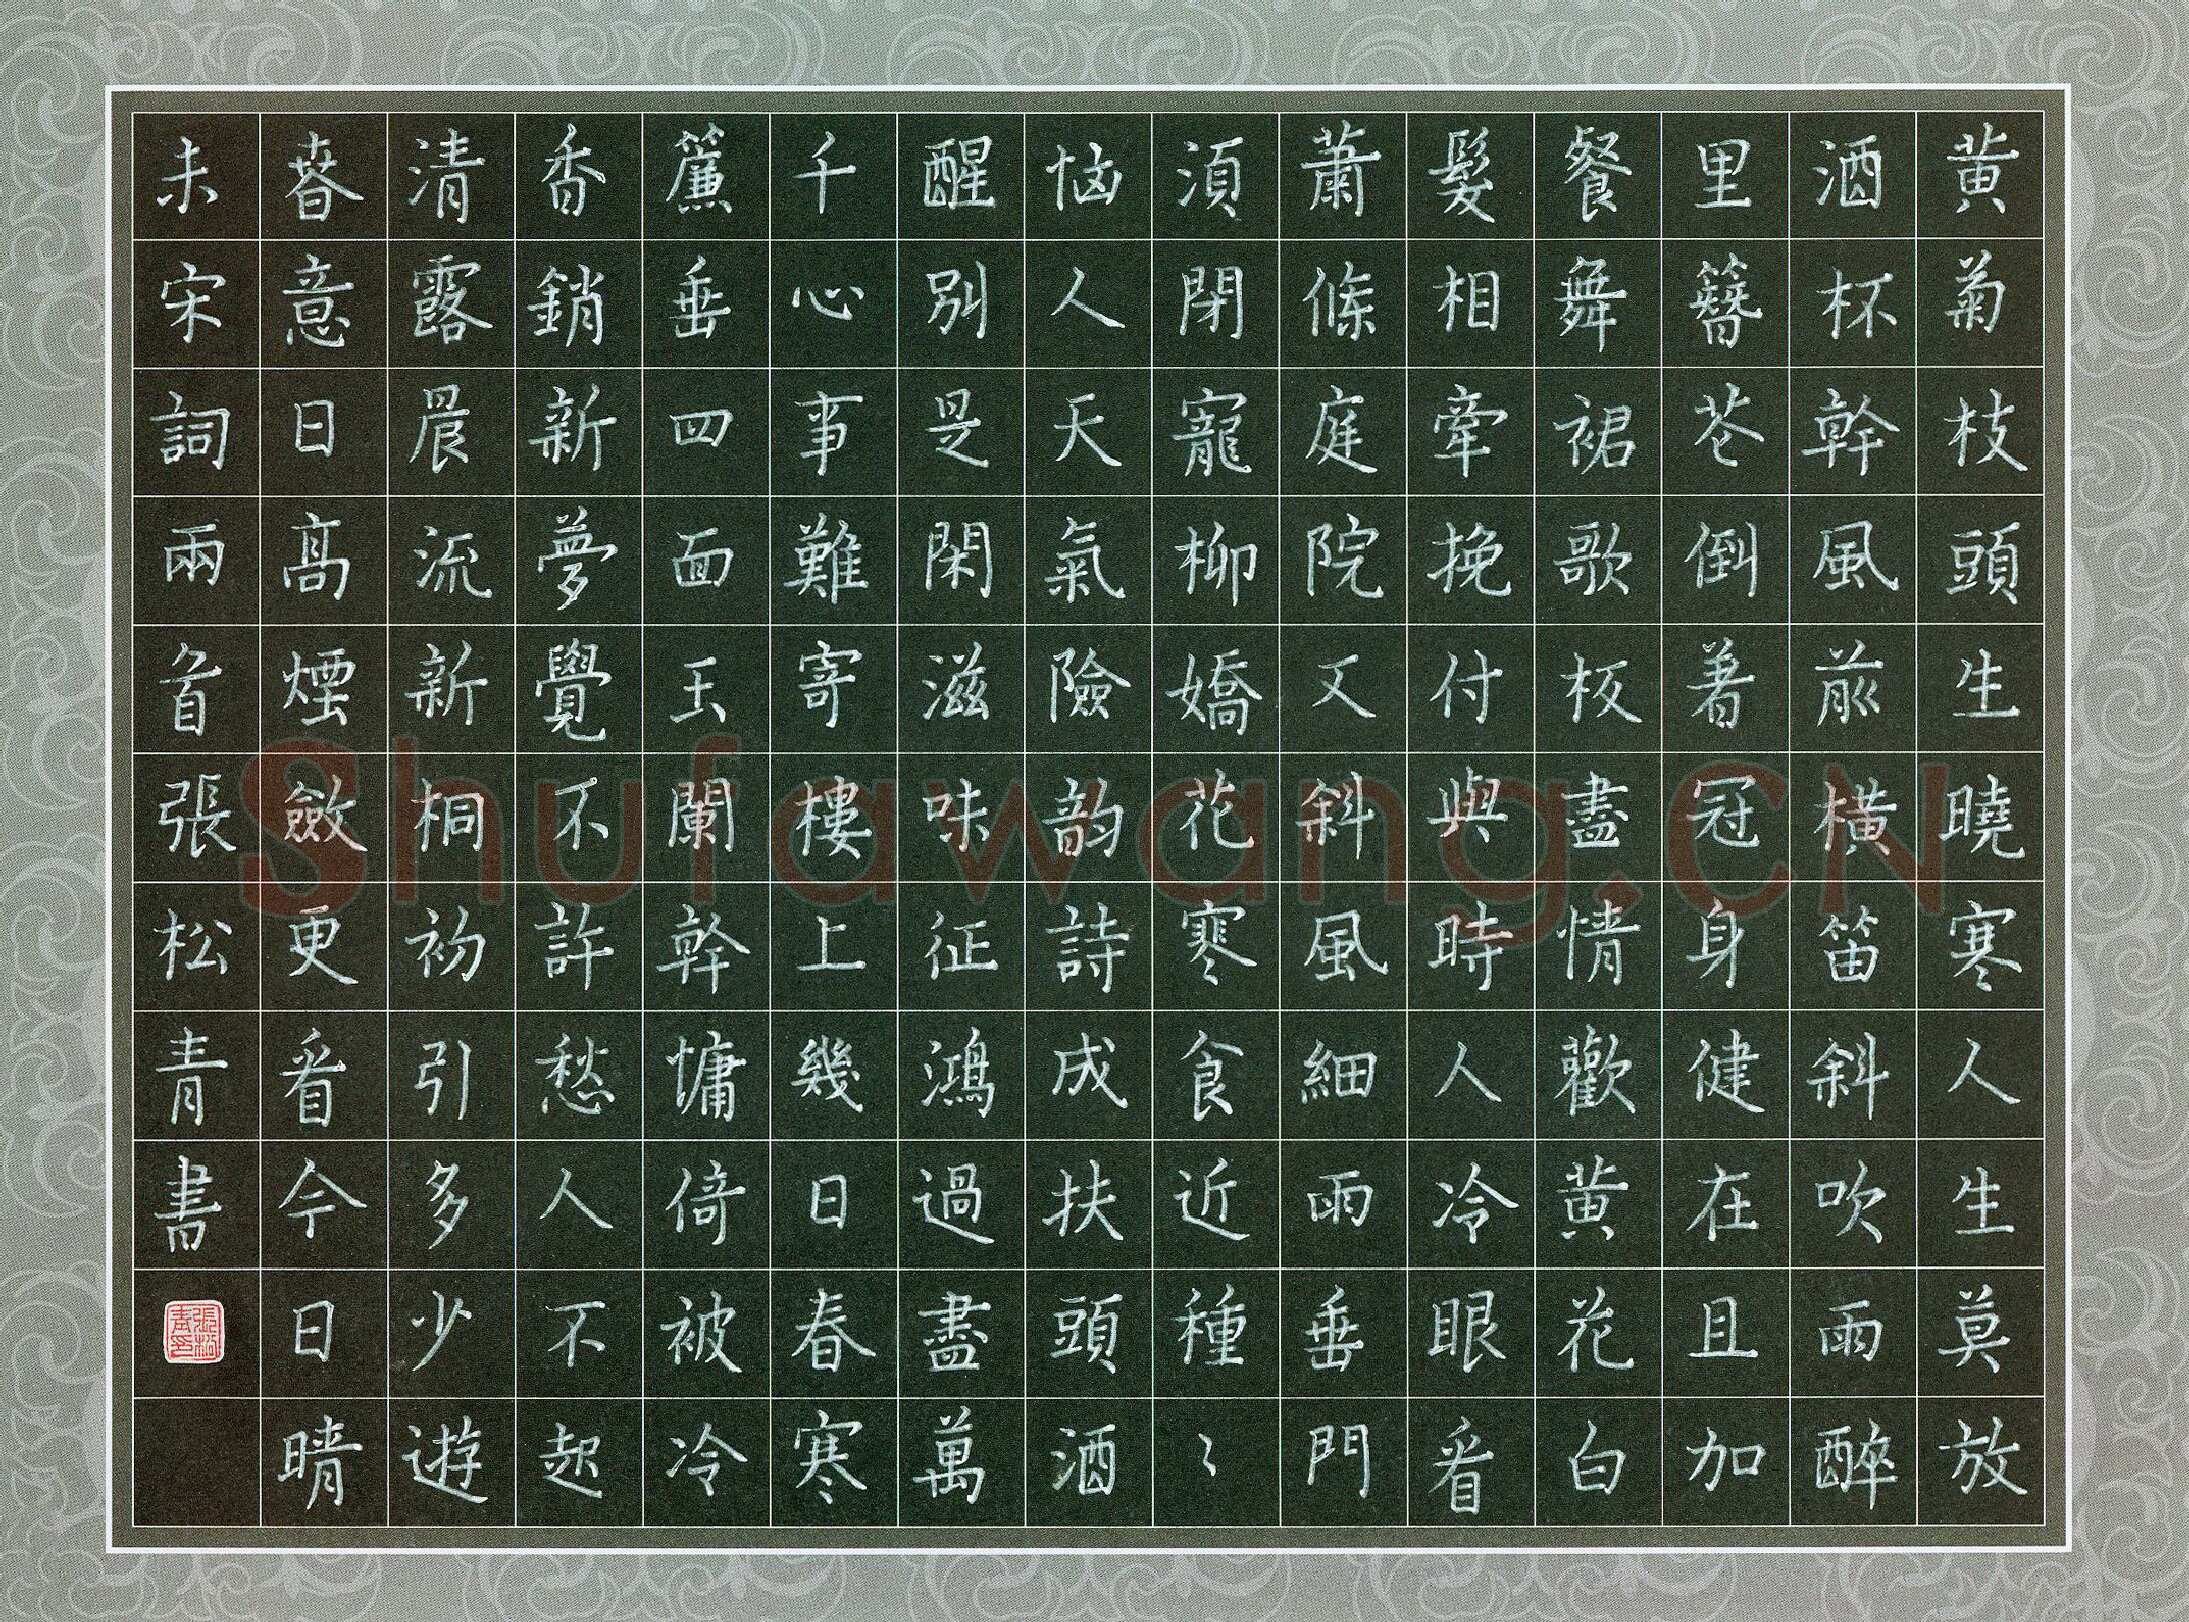 黄菊枝頭生曉寒人生莫放
酒杯幹風前橫笛斜吹雨醉
里簪芲倒着冠身健在且加
餐舞裙歌板盡情歡黄花白
髮相牽挽付與時人冷眼看
蕭條庭院又斜風細雨垂門
須閉寵柳嬌花寒食近種〻
恼人天氣險韵詩成扶頭酒
醒別是閑滋味征鴻過盡萬
千心事難寄樓上幾日春寒
簾垂四面玉闌幹慵倚被冷
香銷新夢覺不許愁人不起
清露晨流新桐初引多少遊
春意日高煙斂更看今日晴
未宋詞兩首張松青書
張松青印
Shufawang.CN